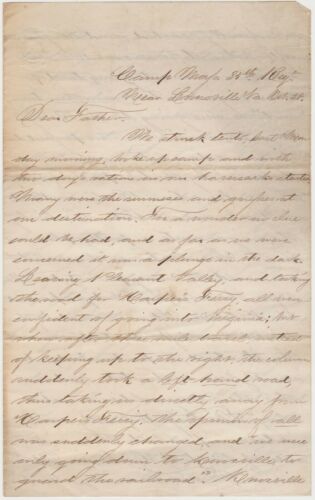 Camp Mass 28th, Regt
Near Va Oct. 28
Dear Father.
We struck tents, last Mon
day morning, broke up camp and with
two days rations in our haversacks started
Many were the surmises and guesses at
our destination. For a wonder no clue
could be had, and as far as we were
concerned it was a plunge in the dark.
Leaving Pleasant Valley, and taking
the road for Harpers Ferry, all were
confident of going into Virginia; but
when after three miles instead
of keeping up to the right, the column
suddenly took a left hand road,
thus taking us directly away from
Harpers Ferry. The opinion of all
was suddenly changed, and we were
only going down to Knoxville to
guard the railroad. Knoxville